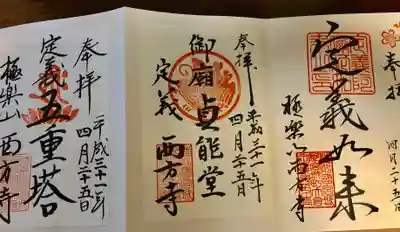 奉拝
四月二十五日
定義如来
極楽山西方寺
奉拝
平成三十一年
四月二十五日
御廟貞能堂
定義
西方寺
奉拝
平成三十一年
四月二十五日
定義
五重塔
極楽山西方寺